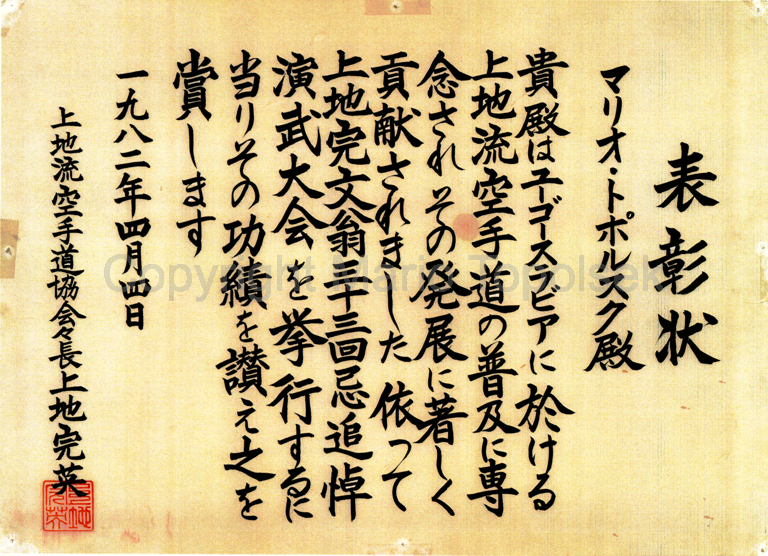 表彰状
マリオ・トポルスク殿
貴殿はユーゴースラビアに於ける
上地流空手道の普及に専
念されその発展に著しく
貢献されました 依って
上地完文翁三十三回忌追悼
演武大会を挙行するに
当りその功績を讃え之を
賞します
一九八二年四月四日
上地流空手道協会々長上地完英
上地完英
Copyright Mario Topolsek